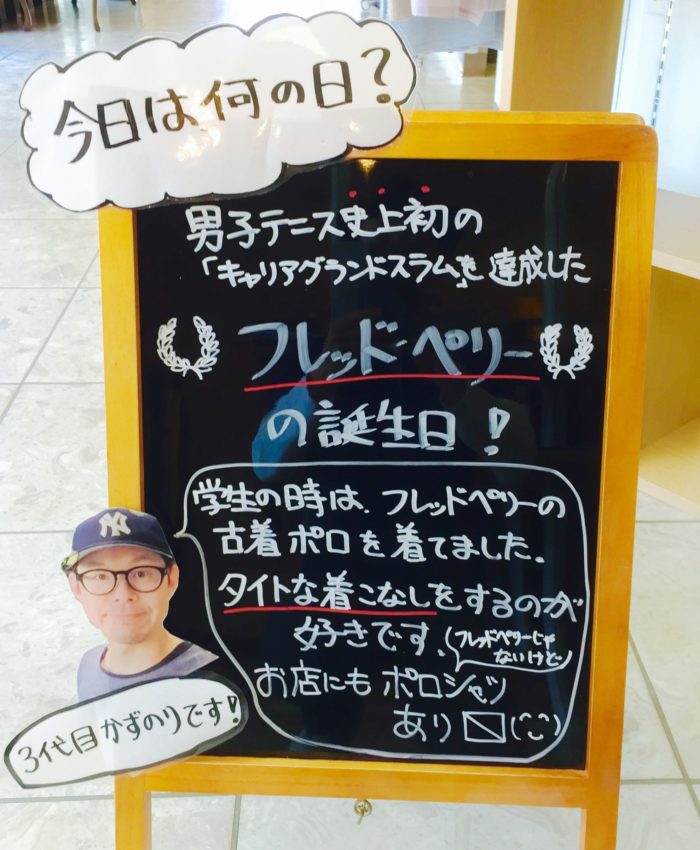 今日は何の日?
男子テニス史上初の
「キャリアグランドスラム」を達成した
フレッド・ペリー
の誕生日!
学生の時は、フレッドペリーの
古着ポロを着てました。
タイトな着こなしをするのが
好きです、
(フレッドペリーじゃ
ないけど)
お店にもポロシャツ
あり〼
NY
3代目かずのりです!